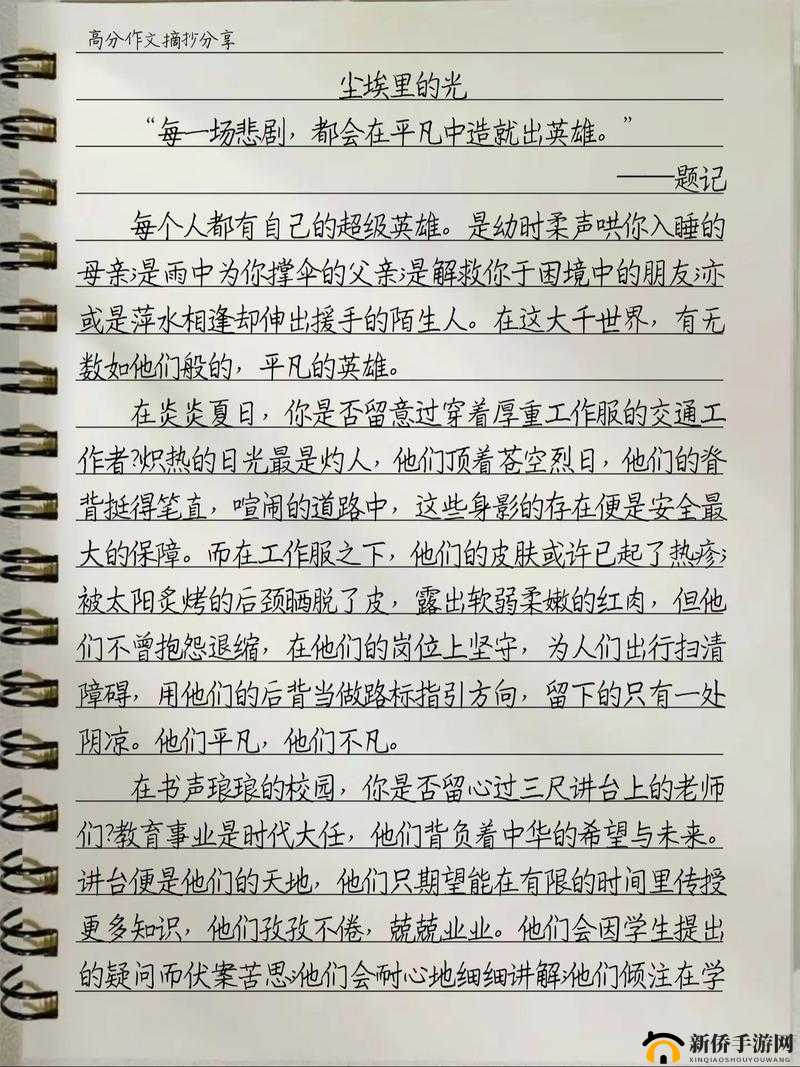 高分作文摘抄分享
尘埃里的光
“每一场悲剧，都会在平凡中造就出英雄。”
——题记
每个人都有自己的超级英雄。是幼时柔声哄你入睡的
母亲;是雨中为你撑伞的父亲;是解救你于困境中的朋友;亦
或是萍水相逢却伸出援手的陌生人。在这大千世界，有无
数如他们般的，平凡的英雄。
在炎炎夏日，你是否留意过穿着厚重工作服的交通工
作者?炽热的日光最是灼人，他们顶着苍空烈日，他们的脊
背挺得笔直，喧闹的道路中，这些身影的存在便是安全最
大的保障。而在工作服之下，他们的皮肤或许已起了热疹;
被太阳炙烤的后颈晒脱了皮，露出软弱柔嫩的红肉，但他
们不曾抱怨退缩，在他们的岗位上坚守，为人们出行扫清
障碍，用他们的后背当做路标指引方向，留下的只有一处
阴凉。他们平凡，他们不凡。
在书声琅琅的校园，你是否留心过三尺讲台上的老师
们?教育事业是时代大任，他们背负着中华的希望与未来。
讲台便是他们的天地，他们只期望能在有限的时间里传授
更多知识，他们孜孜不倦，兢兢业业。他们会因学生提出
的疑问而伏案苦思;他们会耐心地细细讲解;他们倾注在学
新侨手游网
XINQIAOSHOUYOUWANG